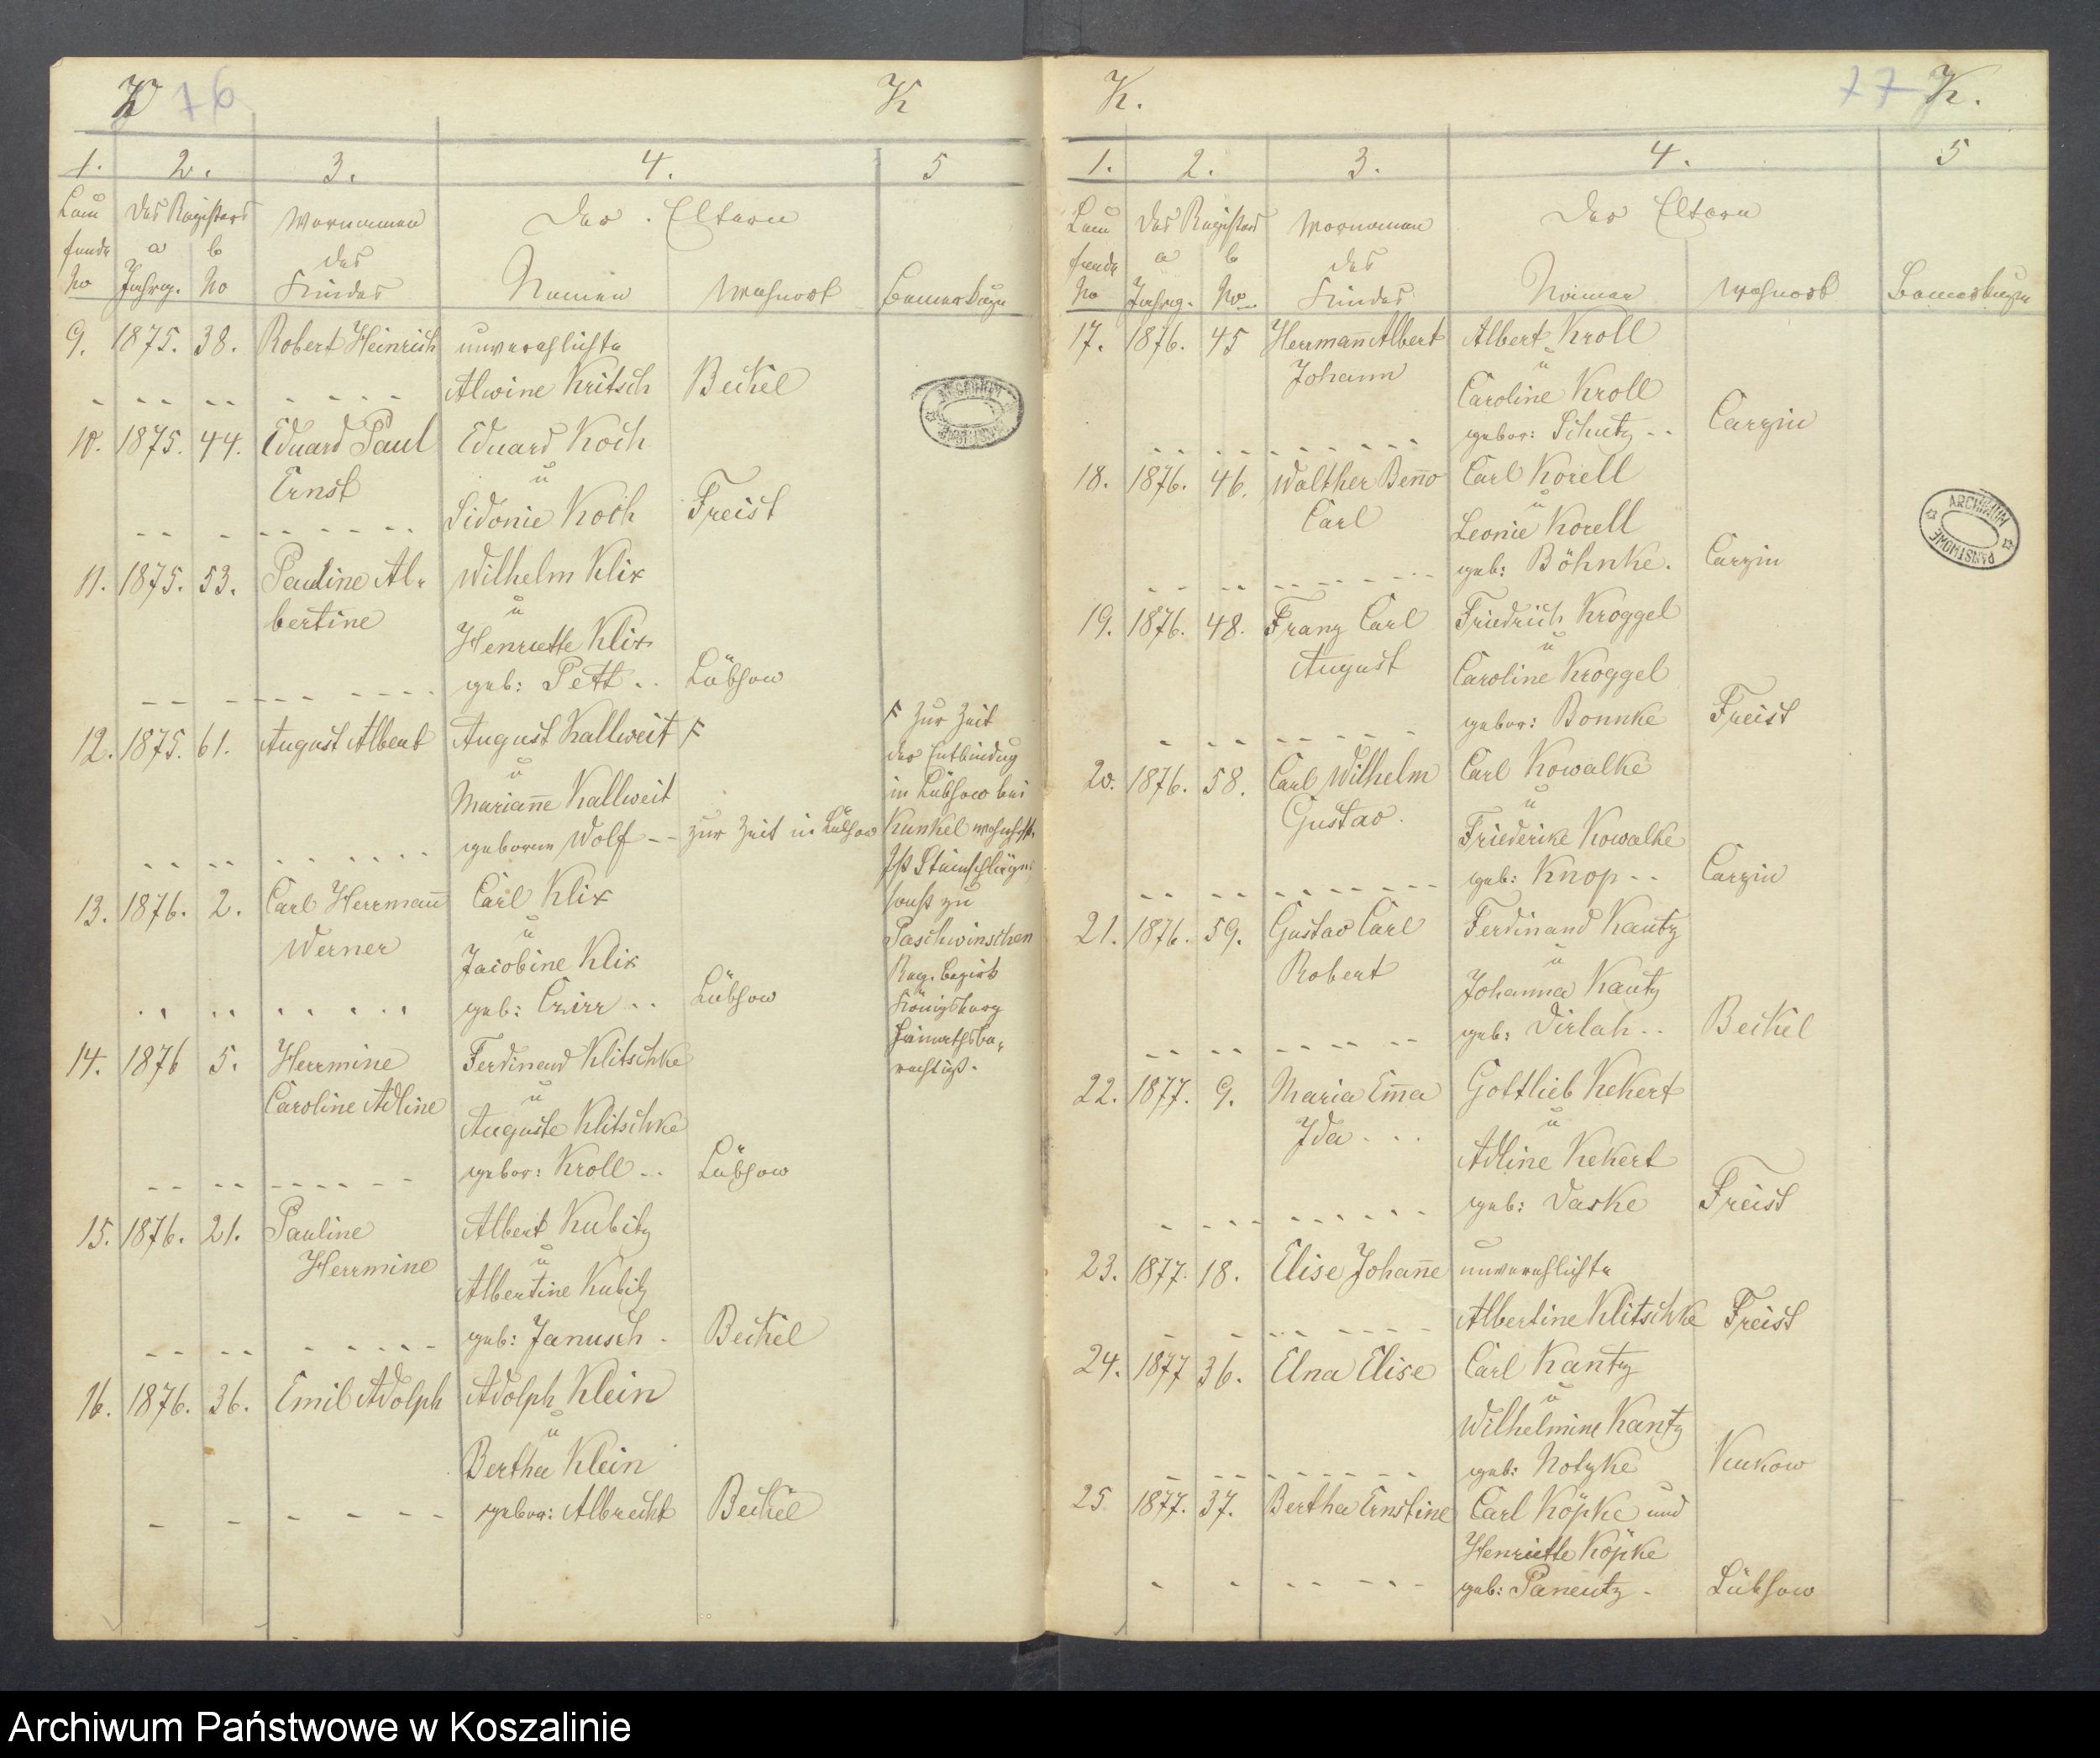 K 76 K
1. 2. 3. 4. 5
Lau des Registers Vornamen der Eltern
fende a b des
No Jahrg. No Kindes Namen Wohnort Bemerkungen
9. 1875. 38. Robert Heinrich unverehlichte
Alwine Kritsch Beckel
10. 1875. 44. Eduard Paul Eduard Koch
Ernst u
Sidonie Koch Freist
11. 1875. 53. Pauline Al- Wilhelm Klix
bertine u
Henriette Klix
geb: Pett Lübsow
12. 1875. 61. August Albert August Kallweit F
u
Marianne Kallweit
geborene Wolf zur Zeit in Lübsow
F zur Zeit
der Entbindung
in Lübsow bei
Kunkel wohnhaft.
sonst zu
Paschwinschen
Reg. Bezirk
Königsburg
Heimathsbe-
rechtigt.
13. 1876. 2. Carl Herrmann Carl Klix
Werner u
Jacobine Klix
geb: Czirr Lübsow
14. 1876 5. Herrmine Ferdinand Klitschke
Caroline Adline u
Auguste Klitschke
gebor: Kroll Lübsow
15. 1876. 21. Pauline Albert Kubitz
Herrmine u
Albertine Kubitz
geb: Janusch Beckel
16. 1876. 36. Emil Adolph Adolph Klein
u
Bertha Klein
gebor: Albrecht Beckel
K. 77 K.
1. 2. 3. 4. 5
Lau des Registers Vornamen der Eltern
fende a b des
No Jahrg. No Kindes Namen Wohnort Bemerkungen
17. 1876. 45 Herrmann Albert Albert Kroll
Johann u
Caroline Kroll
gebor: Schutz Carzin
18. 1876. 46. Walther Benno Carl Korell
Carl u
Leonie Korell
geb: Böhnke. Carzin
19. 1876. 48. Franz Carl Friedrich Kroggel
August u
Caroline Kroggel
gebor: Bonnke Freist
20. 1876. 58. Carl Wilhelm Carl Kowalke
Gustav. u
Friederike Kowalke
geb: Knop Carzin
21. 1876. 59. Gustav Carl Ferdinand Kautz
Robert u
Johanna Kautz
geb: Dirlah Beckel
22. 1877. 9. Maria Emma Gottlieb Kekert
Ida u
Adline Kekert
geb: Daske Freist
23. 1877. 18. Elise Johanne unverehlichte
Albertine Klitschke Freist
24. 1877 36. Elna Elise Carl Kantz
u
Wilhelmine Kantz
geb: Notzke Kukow
25 1877. 37. Bertha Ernstine Carl Köpke und
Henriette Köpke
geb: Panentz Lübsow
ARCHIWUM PAŃSTWOWE
Archiwum Państwowe w Koszalinie